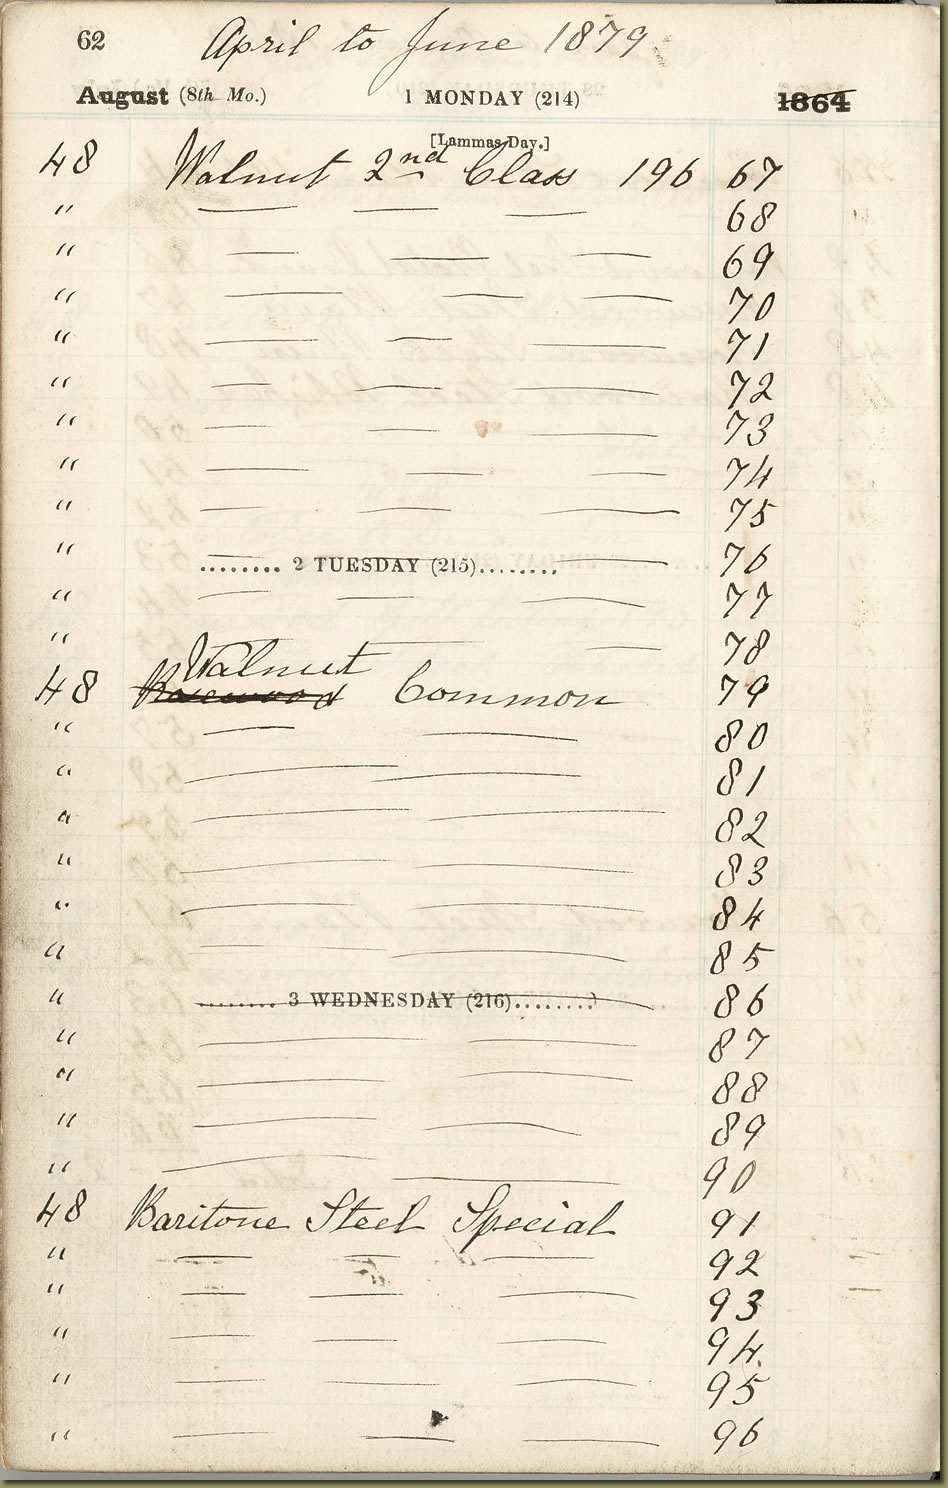 62 April to June 1879
August (8th Mo.) 1 MONDAY (214) 1864
[Lammas Day.]
48 Walnut 2nd Class 196 67
" — — — 68
" — — — 69
" — — — 70
" — — — 71
" — — — 72
" — — — 73
" — — — 74
" — — — 75
" — — — 76
........ 2 TUESDAY (215)........
" — — — 77
" — — 78
Walnut
48 Rosewood Common 79
" — — 80
" — — 81
" — — 82
" — — 83
" — — 84
" — — 85
" — — 86
........ 3 WEDNESDAY (216)........
" — — 87
" — — 88
" — — 89
" — — 90
48 Baritone Steel Special 91
" — — — 92
" — — — 93
" — — — 94
" — — — 95
" — — — 96